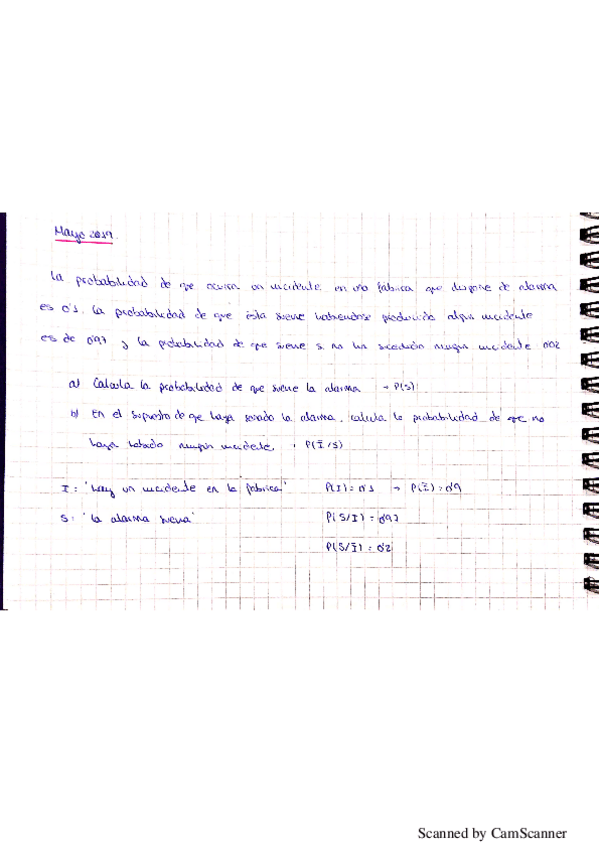 Mayo 2019.
La probabilidad de que ocurra un incidente en una fábrica que dispone de alarma
es 0's. La probabilidad de que ésta suene habiéndose producido algún incidente
es de 0'97 y la probabilidad de que suene si no ha sucedido ningún incidente 0'02
a) Calcula la probabilidad de que suene la alarma → P(S)
b) En el supuesto de que haya sonado la alarma, calcula la probabilidad de que no
haya habido ningún incidente. P(Ī/S)
I: "hay un incidente en la fábrica" P(I) = 0's → P(Ī) = 0'9
S: "la alarma suena" P(S/I) = 0'97
P(S/Ī) = 0'2
Scanned by CamScanner